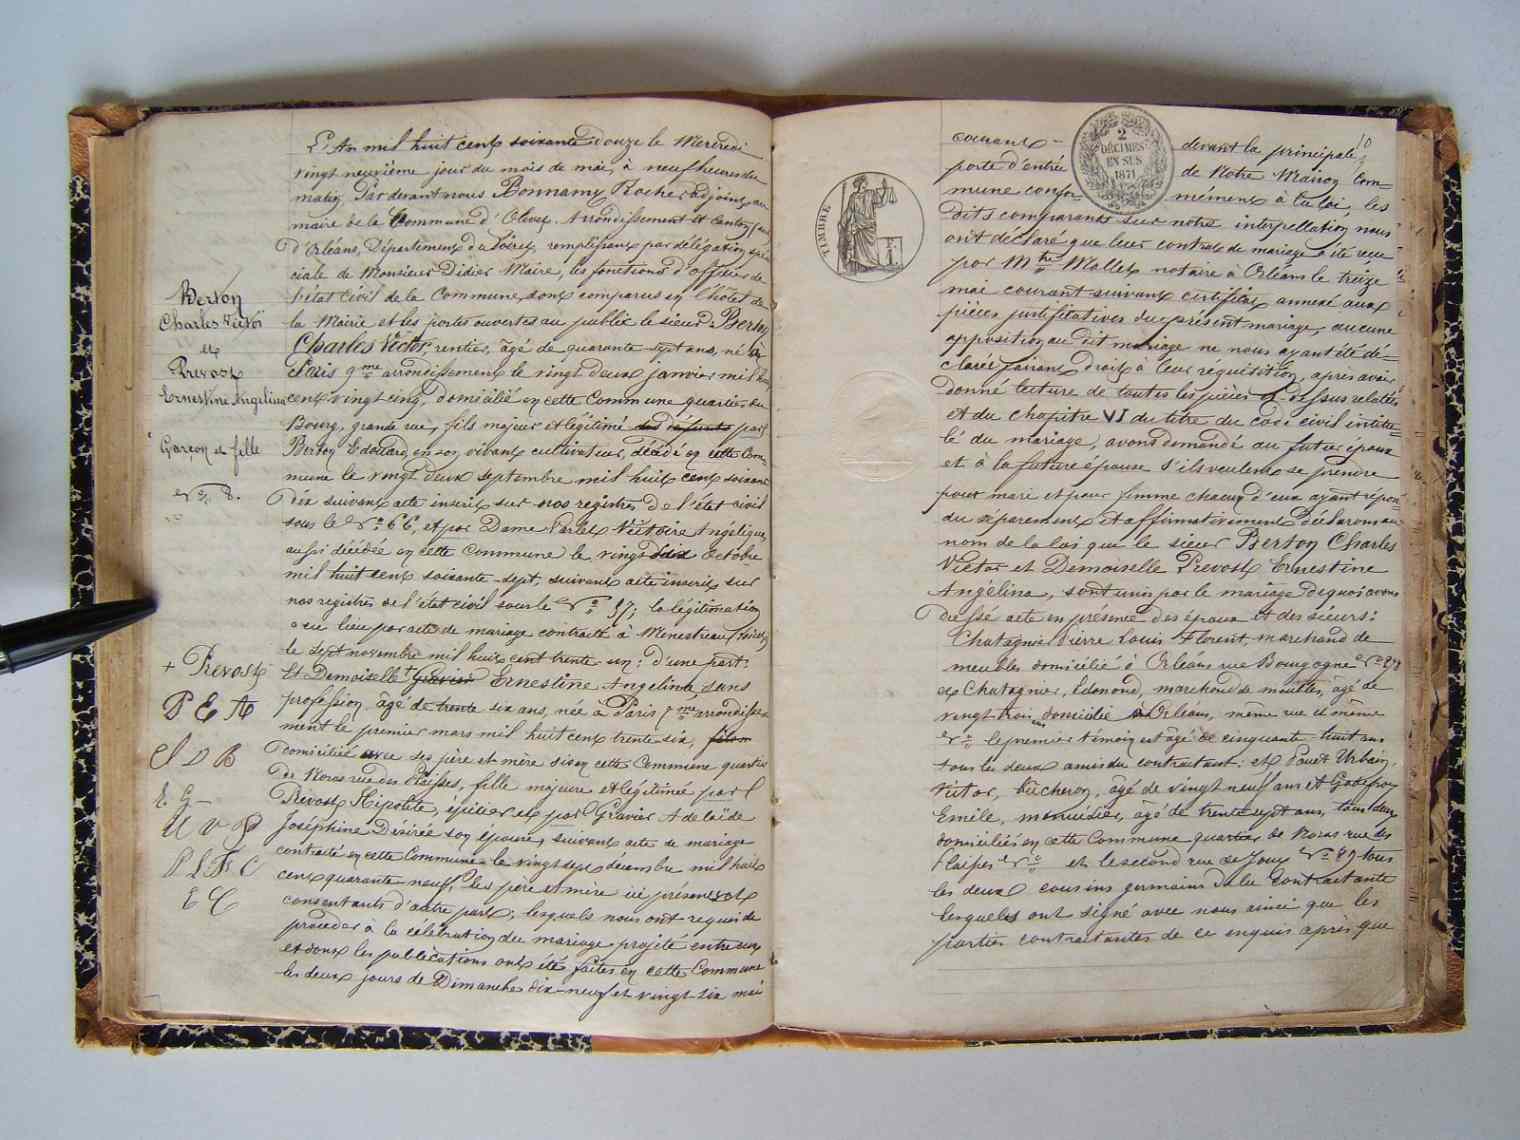 L'An mil huit cent soixante Douze le Mercredi
vingt neuvième jour du mois de mai, à neuf heures du
matin, Par devant nous Bonnamy Roche, adjoint au
maire de la Commune d'Olivet Arrondissement et Canton
d'Orléans, Département du Loiret, remplissant par délégation spé
ciale de Monsieur Didier Maire, les fonctions d'officier de
l'état civil de la Commune, sont comparus en l'hôtel de
la Mairie et les portes ouvertes au public le sieur Berton
Charles Victor, rentier, âgé de quarante-sept ans, né à
Paris 9me arrondissement le vingt deux janvier mil huit
cent vingt cinq, domicilié en cette Commune quartier du
Bourg, grande rue, fils majeur et légitimé des défunts par
Berton Edouard, en son vivant cultivateur, décédé en cette Com-
mune le vingt deux septembre mil huit cent soixante
Dix suivant acte inscrit sur nos registres de l'état civil
sous le No 66, et par Dame Victoire Angélique,
aussi décédée en cette Commune le vingt dix Octobre
mil huit cent soixante-sept, suivant acte inscrit sur
nos registres de l'état civil sous le No 37; la légitimation
a eu lieu par acte de mariage contracté à Menestreau
le sept novembre mil huit cent trente-un; d'une part:
Et Demoiselle + Gravier Ernestine Angelina sans
profession, âgé de trente six ans, née à Paris 7me arrondisse-
ment le premier mars mil huit cent trente six, fille
domiciliée avec ses père et mère si en cette Commune quartier
de Noras rue des Raisses, fille majeure et légitimée par
Prevost Hipolite, épicier et par Gravier Adelaïde
Joséphine Désirée son épouse, suivant acte de mariage
contracté en cette Commune le vingt sept décembre mil huit
cent quarante-neuf, les père et mère ici présents et
consentants d'autre part; lesquels nous ont requis de
procéder à la célébration du mariage projeté entre eux
et dont les publications ont été faites en cette Commune
les deux jours de Dimanche dix-neuf et vingt-six mai
Berton
Charles Victor
et
Prevost
Ernestine Angelina
Garçon et fille
No 8.
+ Prevost
P E A
D B
E. G
U V P
P L F C
E C
10
TIMBRE
2
DÉCIMES
EN SUS
1871
courant devant la principale
porte d'entrée de Notre Mairie Com-
mune conformément à la loi, les
Dits comparants sur notre interpellation nous
ont déclaré que leur contrat de mariage a été reçu
par Mtre Mallet notaire à Orléans le treize
mai courant suivant certificat annexé aux
pièces justificatives du présent mariage, aucune
opposition au dit mariage ne nous ayant été dé-
clarée, faisant droit à leur réquisition, après avoir
donné lecture de toutes les pièces ci-dessus relatées
et du chapitre VI du titre du code civil intitu-
lé du mariage, avons demandé au futur époux
et à la future épouse s'ils veulent se prendre
pour mari et pour femme chacun d'eux ayant répon-
du séparément et affirmativement déclarons au
nom de la loi que le sieur Berton Charles
Victor et Demoiselle Prevost Ernestine
Angélina, sont unis par le mariage de quoi avons
dressé acte en présence des époux et des sieurs:
Chatagnier Pierre Louis Florent, marchand de
meubles domicilié à Orléans rue Bourgogne No
et Chatagnier, Edmond, marchand de meubles, âgé de
vingt-trois ans domicilié à Orléans, même rue et même
No le premier témoin est âgé de cinquante-huit ans
tous les deux amis du contractant; et Pouet Urbain,
Victor, bûcheron, âgé de vingt neuf ans et Godefroy
Emile, menuisier, âgé de trente sept ans, tous deux
domiciliés en cette Commune quartier de Noras rue des
Raisses No et le second rue de Jouy No 89 tous
les deux cousins germains de la Contractante
lesquels ont signé avec nous ainsi que les
parties contractantes de ce enquis après que